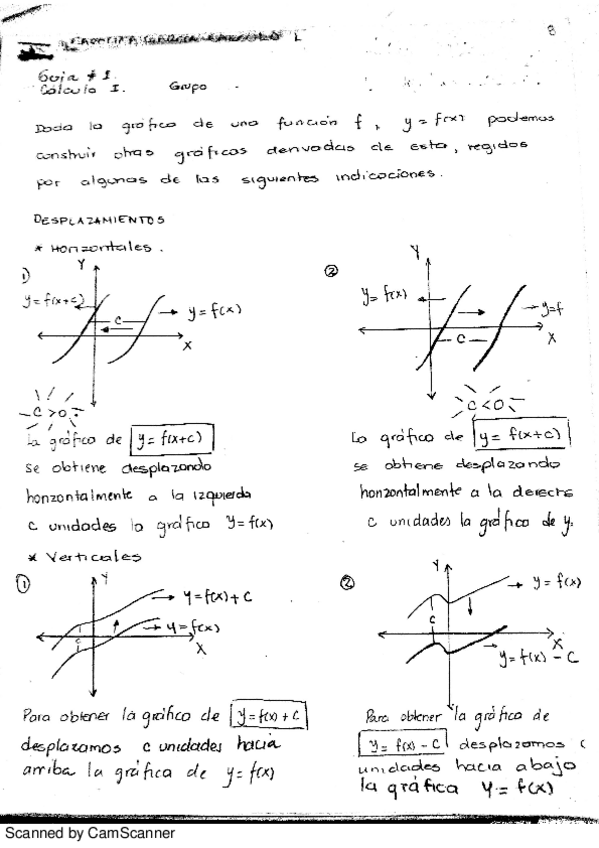 8
Guia # 1.
Cálculo I. Grupo
Dada la gráfica de una función f, y = f(x) podemos
construir otras gráficas derivadas de esta, regidas
por algunas de las siguientes indicaciones.
DESPLAZAMIENTOS
* Horizontales.
1) Y
y = f(x+c)
c
y = f(x)
X
C > 0
La gráfica de y = f(x+c)
se obtiene desplazando
horizontalmente a la izquierda
c unidades la gráfica y = f(x)
2 Y
y = f(x)
y=f
C
X
C < 0
La gráfica de y = f(x+c)
se obtiene desplazando
horizontalmente a la derecha
c unidades la gráfica de y.
* Verticales
1 Y
y = f(x) + c
y = f(x)
c
X
Para obtener la gráfica de y = f(x) + c
desplazamos c unidades hacia
arriba la gráfica de y = f(x)
2 Y
y = f(x)
c
X
y = f(x) - c
Para obtener la gráfica de
y = f(x) - c desplazamos c
unidades hacia abajo
la gráfica y = f(x)
Scanned by CamScanner